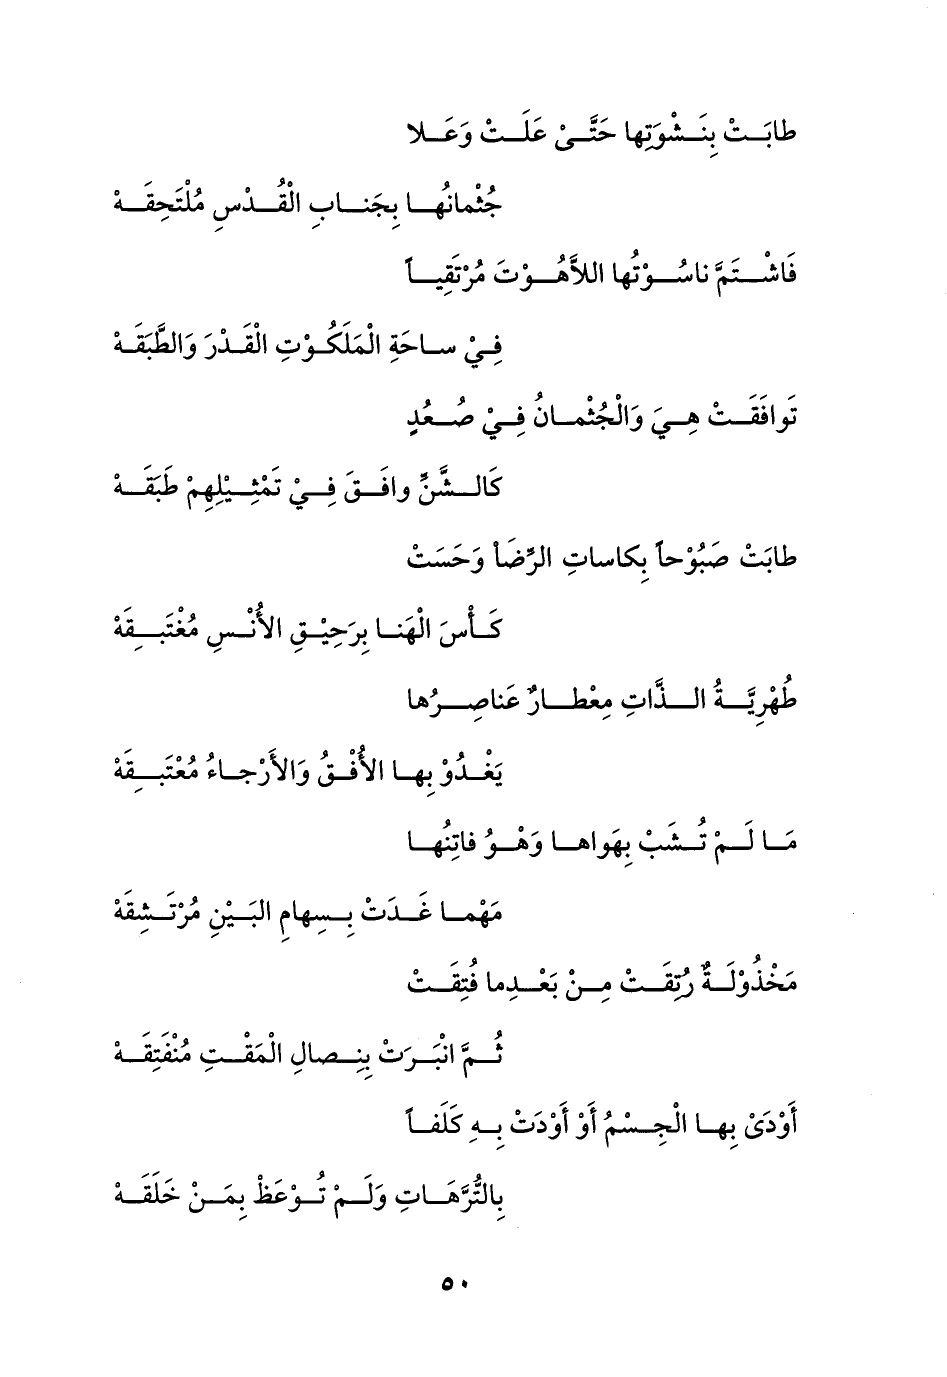 طابَتْ بِنَشْوَتِها حَتَّىْ عَلَتْ وَعَلا
جُثْمانُها بِجَنابِ الْقُدْسِ مُلْتَحِقَهْ
فَاشْتَمَّ ناسُوْتُها اللاَّهُوْتَ مُرْتَقِياً
فِيْ ساحَةِ الْمَلَكُوْتِ الْقَدْرَ وَالطَّبَقَهْ
تَوافَقَتْ هِيَ وَالْجُثْمانُ فِيْ صُعُدٍ
كَالشَّنِّ وافَقَ فِيْ تَمْثِيْلِهِمْ طَبَقَهْ
طابَتْ صَبُوْحاً بِكاساتِ الرِّضَاْ وَحَسَتْ
كَأْسَ الْهَنا بِرَحِيْقِ الأُنْسِ مُغْتَبِقَهْ
طُهْرِيَّةُ الذَّاتِ مِعْطارٌ عَناصِرُها
يَغْدُوْ بِها الأُفْقُ وَالأَرْجاءُ مُعْتَبِقَهْ
مَا لَمْ تُشَبْ بِهَواها وَهْوُ فاتِنُها
مَهْما غَدَتْ بِسِهامِ البَيْنِ مُرْتَشِقَهْ
مَخْذُوْلَةٌ رُتِقَتْ مِنْ بَعْدِما فُتِقَتْ
ثُمَّ انْبَرَتْ بِنِصالِ الْمَقْتِ مُنْفَتِقَهْ
أَوْدَىْ بِها الْجِسْمُ أَوْ أَوْدَتْ بِهِ كَلَفاً
بِالتُّرَّهَاتِ وَلَمْ تُوْعَظْ بِمَنْ خَلَقَهْ
٥٠